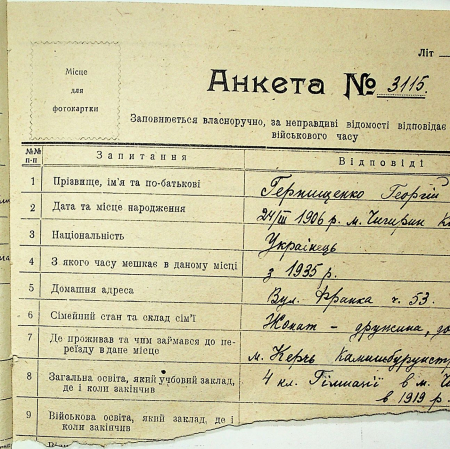 Літ
Місце
для
фотокартки
Анкета № 3115.
Заповнюється власноручно, за неправдиві відомості відповідає
військового часу
№№ п-п Запитання Відповіді
1 Прізвище, ім'я та по-батькові Георгій
2 Дата та місце народження 24/III 1906 р. м. Чигирин
3 Національність Українець
4 З якого часу мешкає в даному місці з 1935 р.
5 Домашня адреса Вул. Франка ч. 53.
6 Сімейний стан та склад сім'ї Жонат – дружина,
7 Де проживав та чим займався до пе-
реїзду в дане місце м. Керч
8 Загальна освіта, який учбовий заклад, 4 кл. Гімназії в м.
де і коли закінчив в 1919 р.
9 Військова освіта, який заклад, де і
коли закінчив